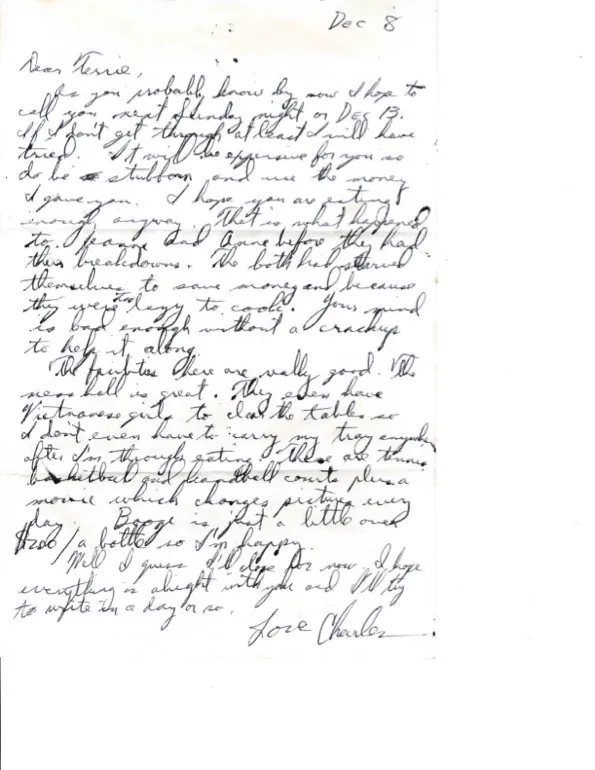 Dec 8
Dear Terrie,
As you probably know by now I hope to
call you next Sunday night or Dec 13.
If I don't get through at least I will have
tried. It will be expensive for you so
do be stubborn and use the money
I gave you. I hope you are eating
enough anyway. That is what happened
to Jeanne and Anne before they had
their breakdowns. The both had starved
themselves to save money and because
they were too lazy to cook. Your mind
is bad enough without a crackup
to help it along.
The facilities here are really good. The
mess hall is great. They even have
Vietnamese girls to clear the tables so
I don't even have to carry my tray anywhere
after I'm through eating. There are tennis
basketball and handball courts plus a
movie which changes picture every
day. Booze is just a little over
$2.00 / a bottle so I'm happy.
Well I guess I'll close for now. I hope
everything is alright with you and I'll try
to write in a day or so.
Love Charles